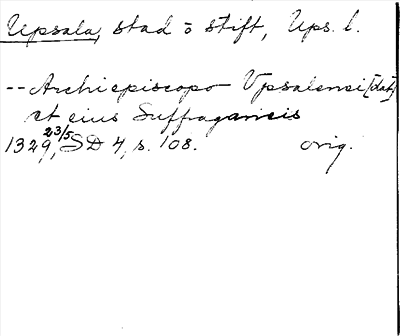 Upsala, stad o stift, Ups. l.
-- Archiepiscopo Vpsalensi [dat]
et eius Suffraganeis
1329 23/5, SD 4, s. 108. orig.